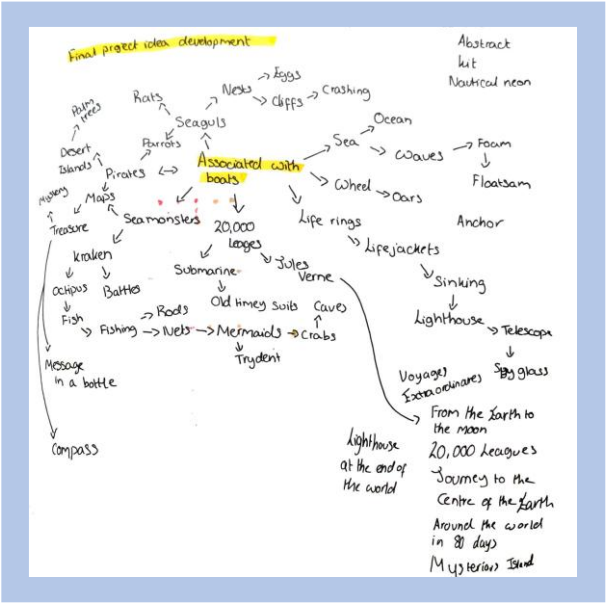 Final project idea development
Abstract
kit
Nautical neon
Eggs
Nests
Cliffs
Crashing
Rats
Seaguls
Palm
trees
Parrots
Desert
Islands
Pirates
Associated with
boats
Sea
Ocean
Waves
Foam
Floatsam
Wheel
Oars
Anchor
Mystery
Maps
Treasure
Seamonsters
20,000
leages
Life rings
Lifejackets
Sinking
Lighthouse
Telescope
Spyglass
Kraken
Octipus
Battles
Submarine
Jules
Verne
Old timey suits
Caves
Fish
Fishing
Rods
Nets
Mermaids
Crabs
Trydent
Message
in a bottle
Compass
Voyages
Extraordinares
From the Earth to
the moon
20,000 Leagues
Journey to the
Centre of the Earth
Around the world
in 80 days
Mysterious Island
Lighthouse
at the end of
the world